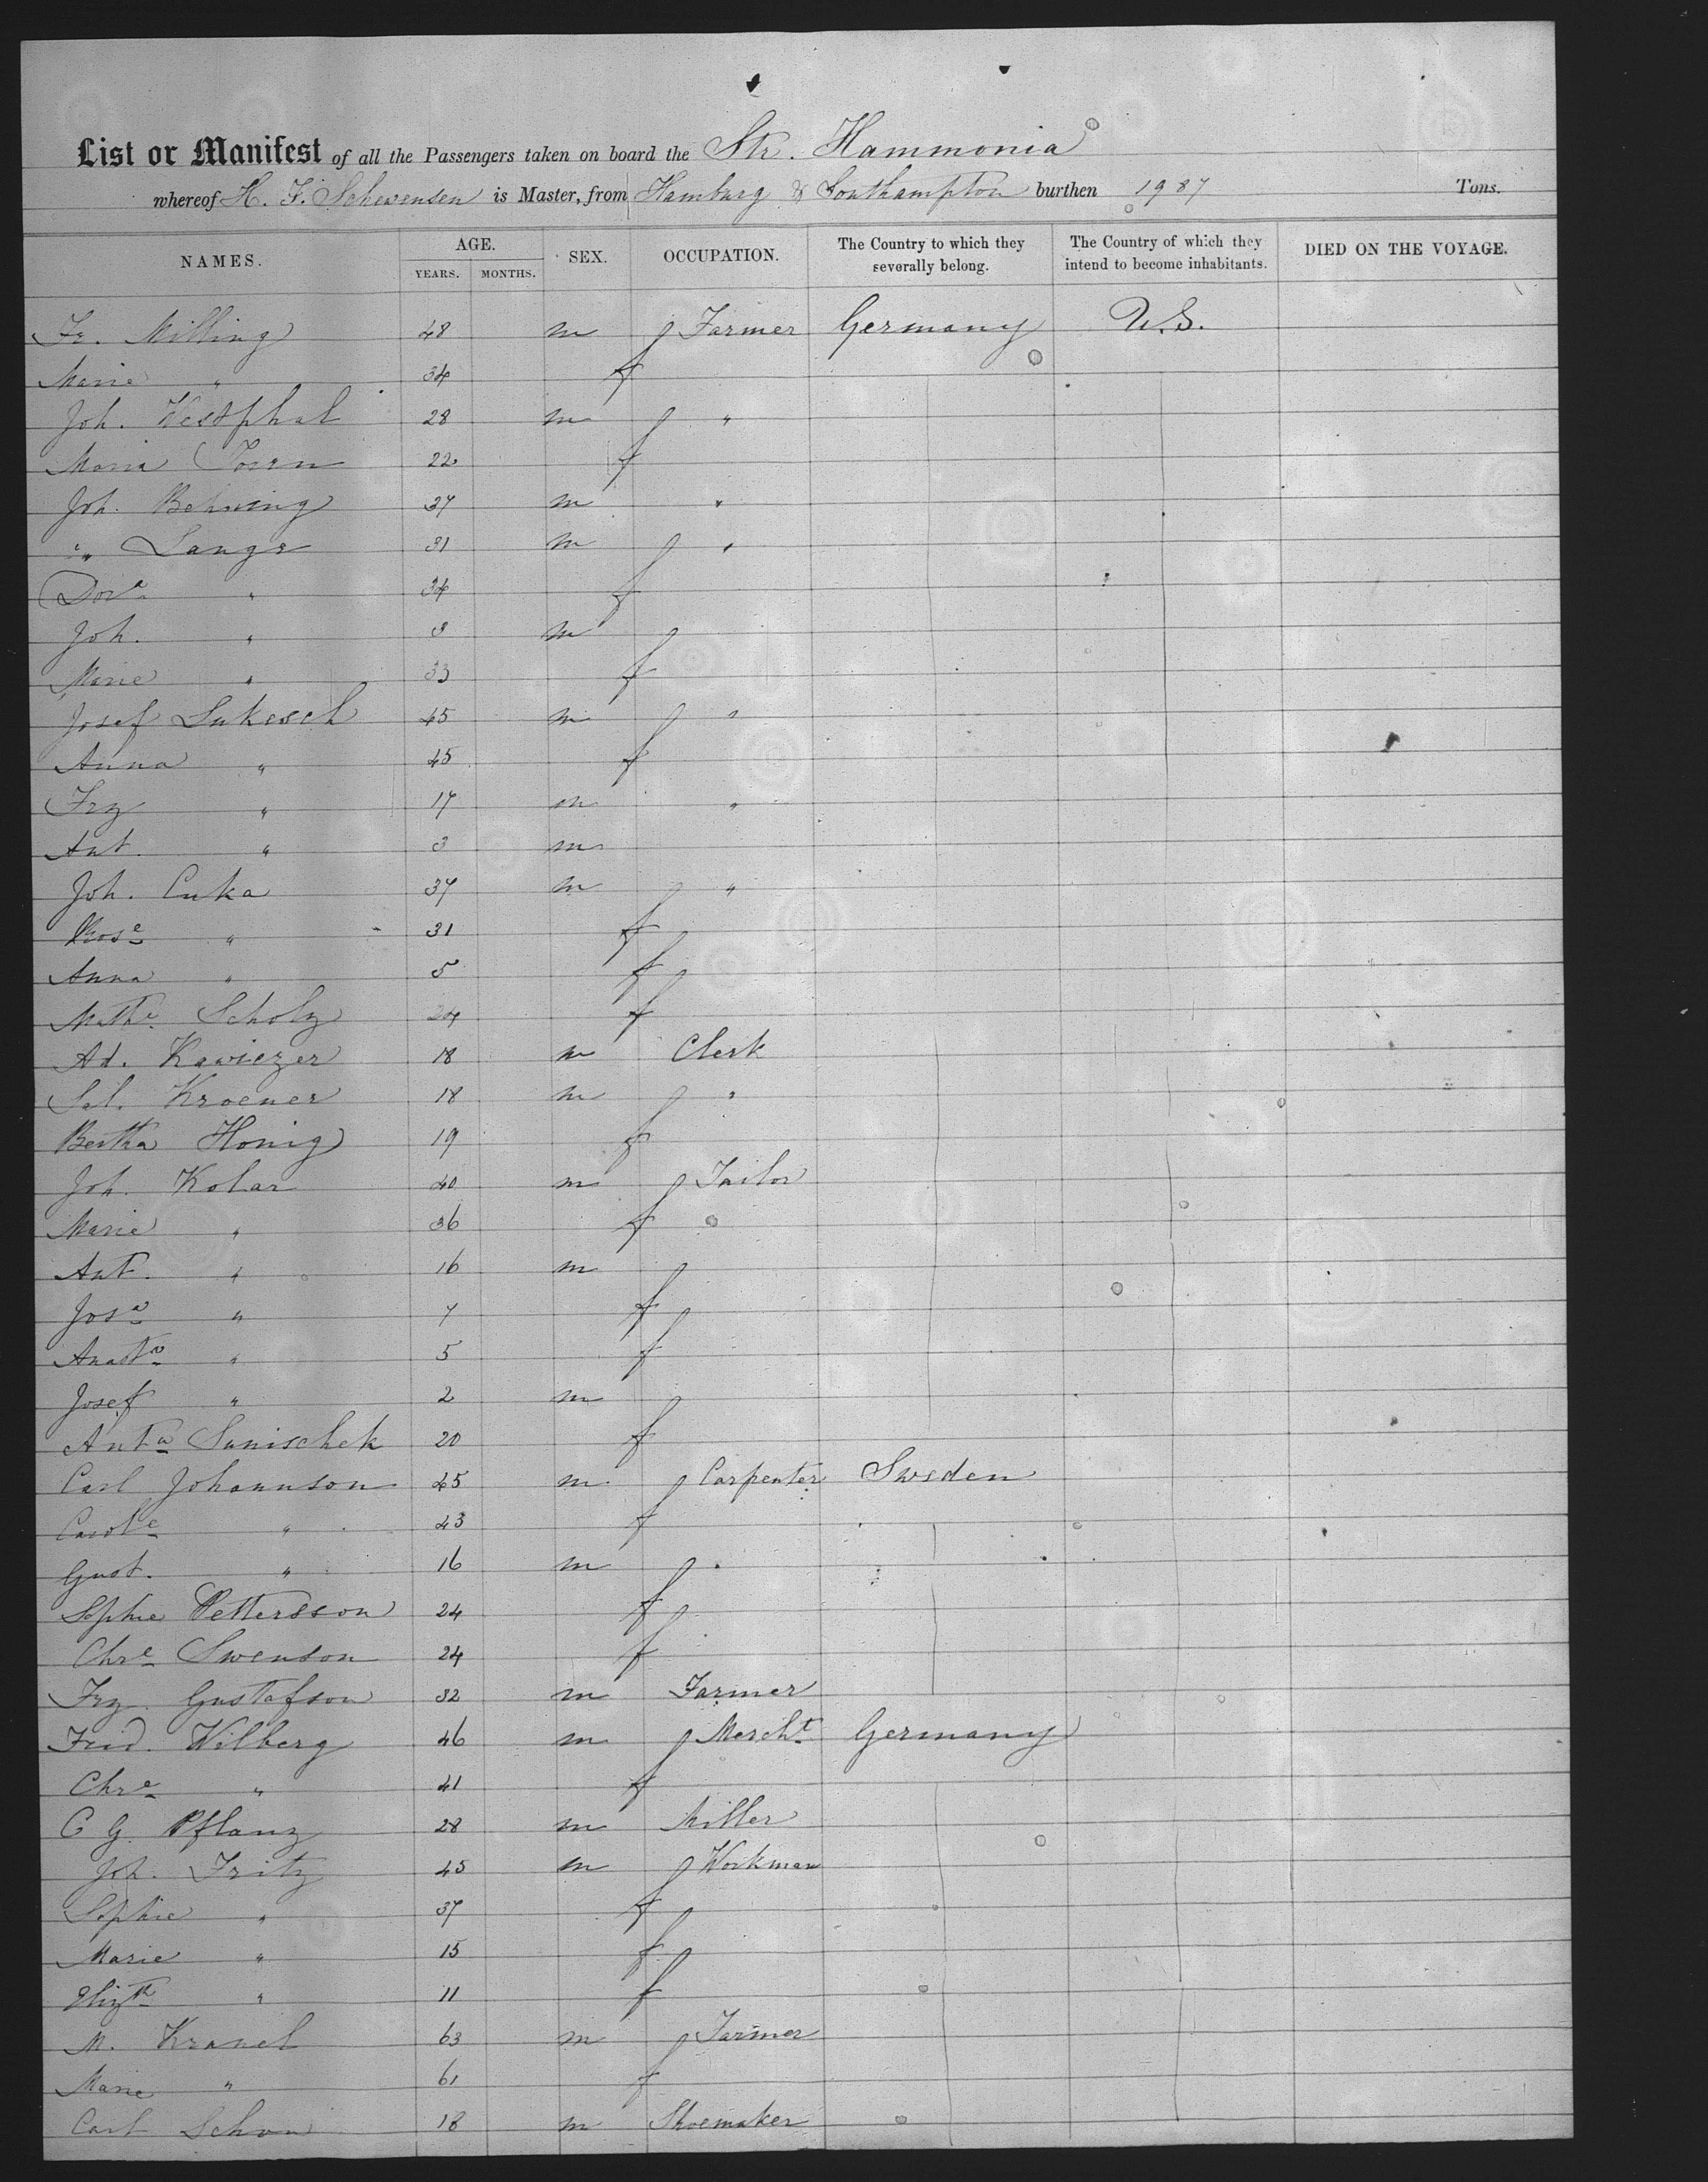 List or Manifest of all the Passengers taken on board the Str. Hammonia
whereof H. F. Schwensen is Master, from Hamburg & Southampton burthen 1987 Tons.
NAMES. AGE. YEARS. MONTHS. SEX. OCCUPATION. The Country to which they severally belong. The Country of which they intend to become inhabitants. DIED ON THE VOYAGE.
Fr. Milling 48 m Farmer Germany U.S.
Marie " 34 f
Joh. Westphal 28 m "
Maria 22 f
Joh. Behning 37 m "
" Lange 31 m "
Dore " 34 f
Joh. " 3 m
Marie " 33 f
Josef Lukesch 45 m "
Anna " 45 f
Frz " 17 m "
Ant. " 3 m
Joh. Cuka 37 m "
Rose " 31 f
Anna " 5 f
Mthe Scholz 24 f
Ad. Kawiezer 18 m Clerk
Sal. Kroener 18 m "
Bertha Honig 19 f
Joh. Kolar 40 m Tailor
Marie " 36 f
Ant. " 16 m
Josa " 7 f
Anasta " 5 f
Josef " 2 m
Anta Sanischek 20 f
Carl Johannson 45 m Carpenter Sweden
Carole " 43 f
Gust. " 16 m "
Sophie Pettersson 24 f
Chre Swenson 24 f
Frz. Gustafson 32 m Farmer
Frid. Wilberg 46 m Mercht Germany
Chre " 41 f
C G. Pflanz 28 m Miller
Joh. Fritz 45 m Workman
Sophie " 37 f
Marie " 15 f
Elizth " 11 f
M. Kranel 63 m Farmer
Marie " 61 f
Carl Schon 18 m Shoemaker